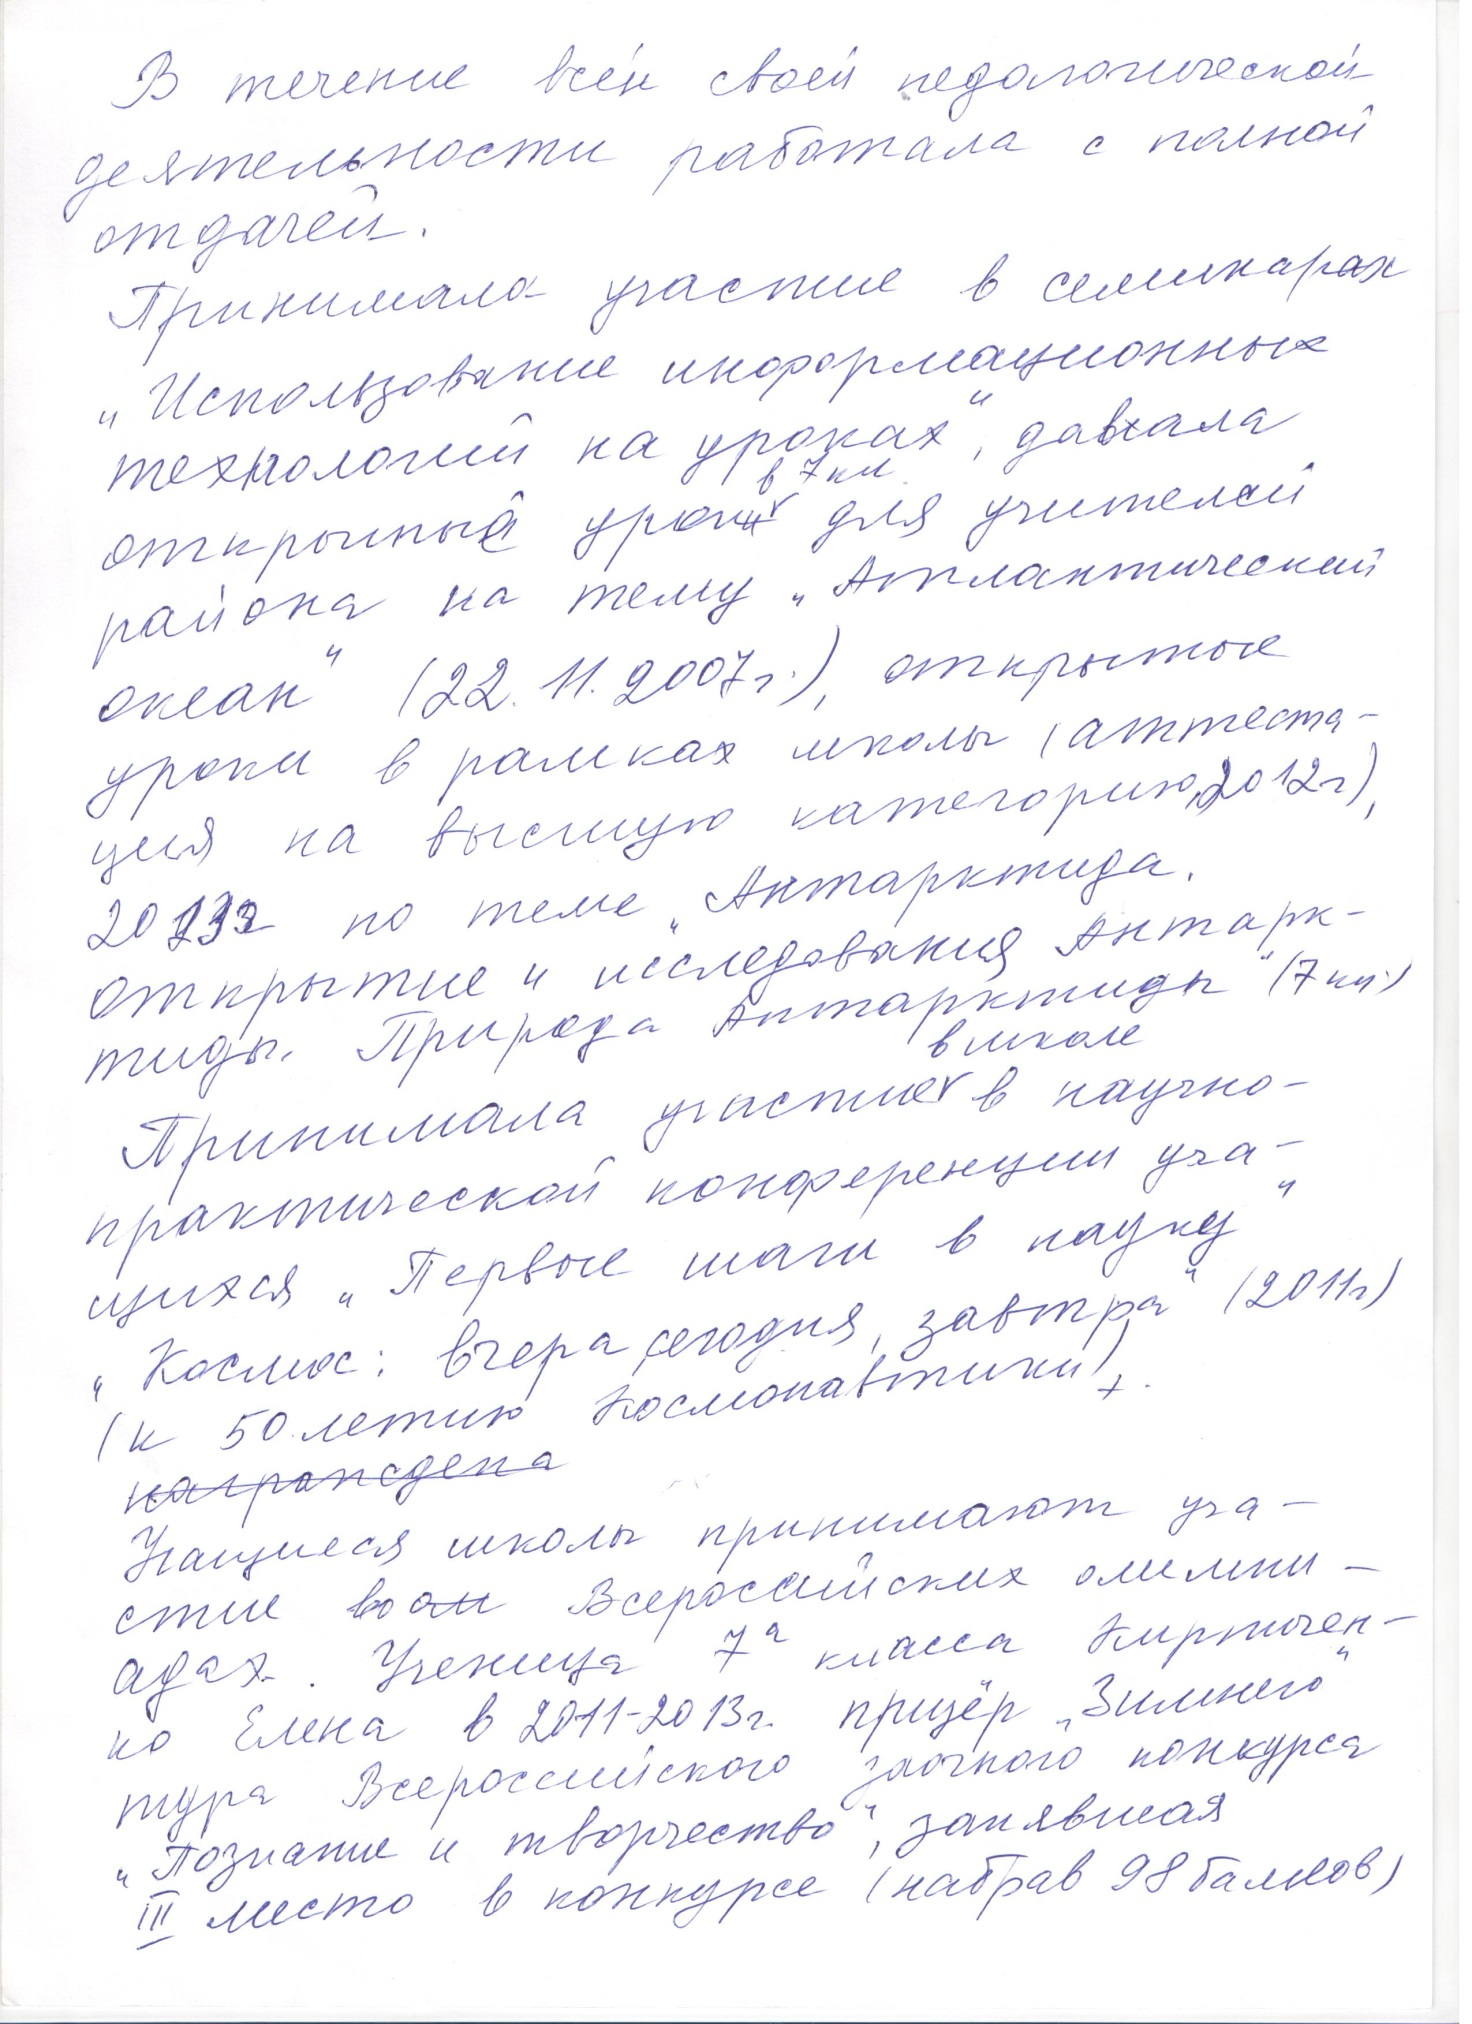 В течение всей своей педагогической
деятельности работала с полной
отдачей.
Принимала участие в семинарах
„Использование информационных
технологий на уроках", давала
в 7 кл.
открытый урок для учителей
района на тему „Атлантический
океан" (22.11.2007г.), открытые
уроки в рамках школы (аттеста-
ция на высшую категорию, 2012г),
2013г по теме „Антарктида.
Открытие и исследования Антарк-
тиды. Природа Антарктиды" (7 кл.)
в школе
Принимала участие в научно-
практической конференции уча-
щихся „Первые шаги в науку"
„Космос: вчера, сегодня, завтра" (2011г)
(к 50-летию Космонавтики).
награждена
Учащиеся школы принимают уча-
стие во Всероссийских олимпи-
адах. Ученица 7а класса
ко Елена в 2011-2013г. призёр „Зимнего"
тура Всероссийского заочного конкурса
„Познание и творчество", занявшая
III место в конкурсе (набрав 98 баллов)